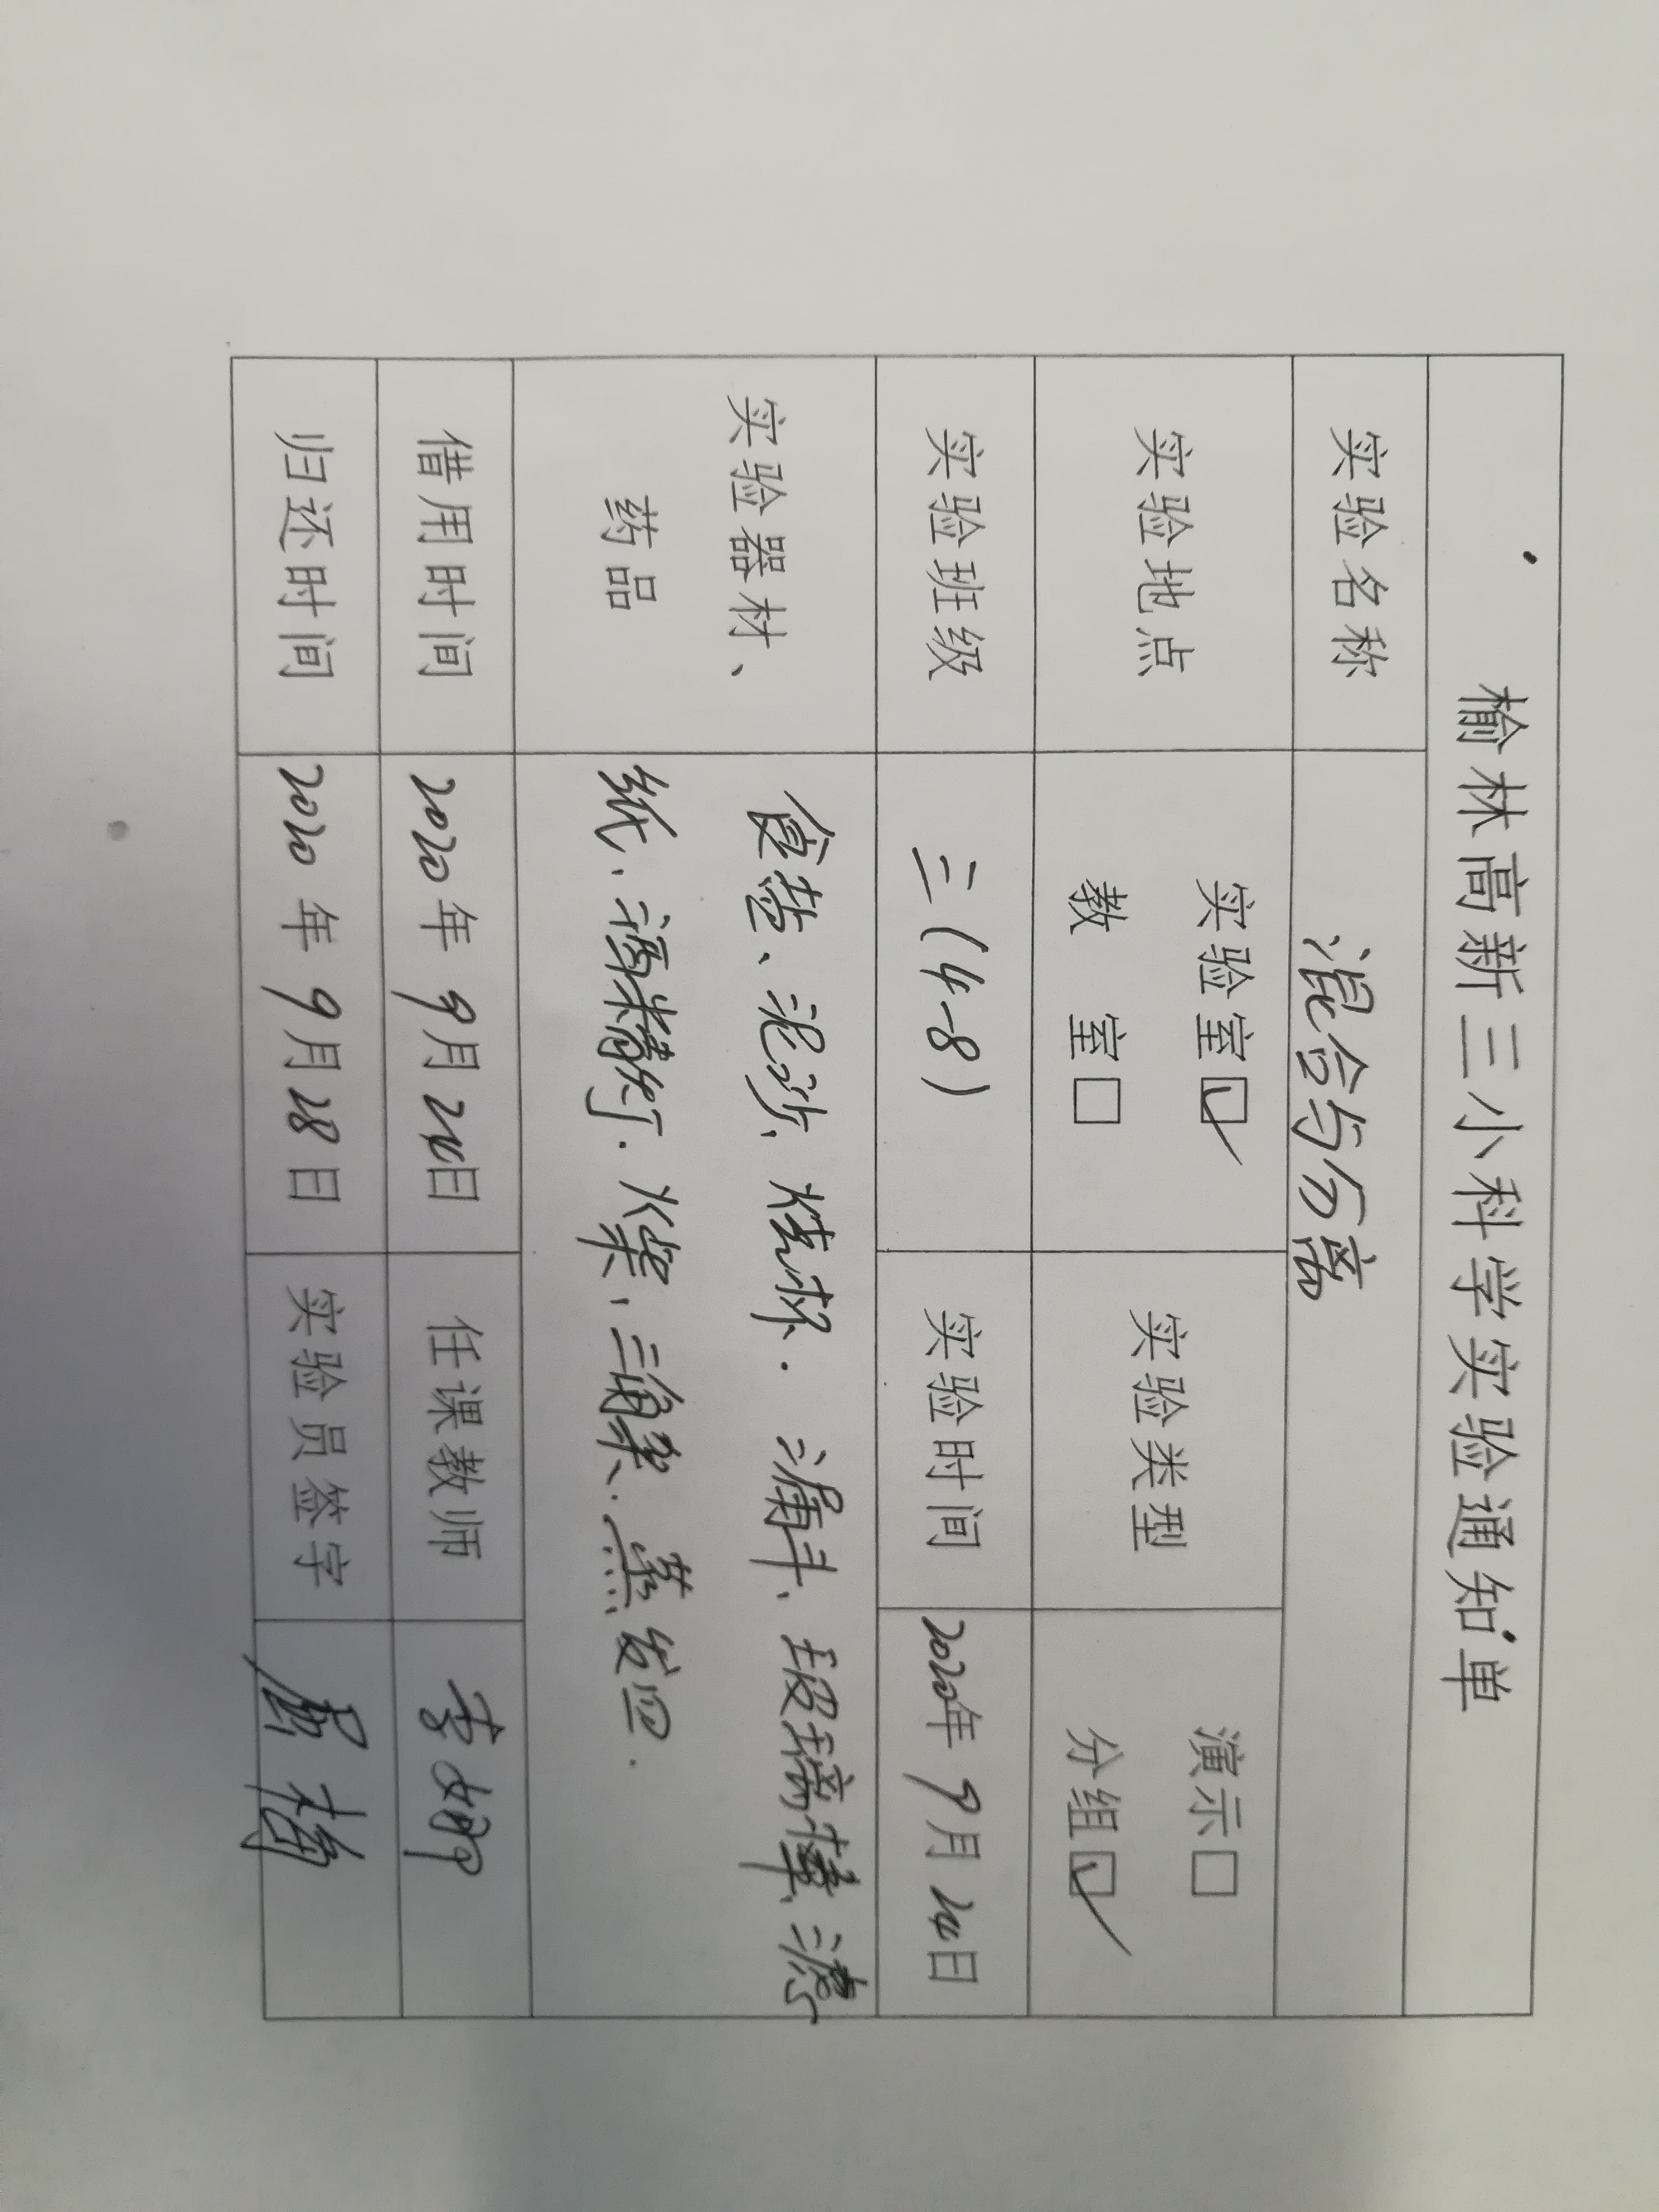 榆林高新三小科学实验通知单
实验名称 混合与分离
实验地点 实验室☑ 教 室□ 实验类型 演示□ 分组☑
实验班级 三(4-8) 实验时间 2020年9月24日
实验器材、药品 食盐、泥沙、烧杯、漏斗、玻璃棒、滤
纸、酒精灯、火柴、三角架、蒸发皿.
借用时间 2020年9月24日 任课教师 李娜
归还时间 2020年9月28日 实验员签字